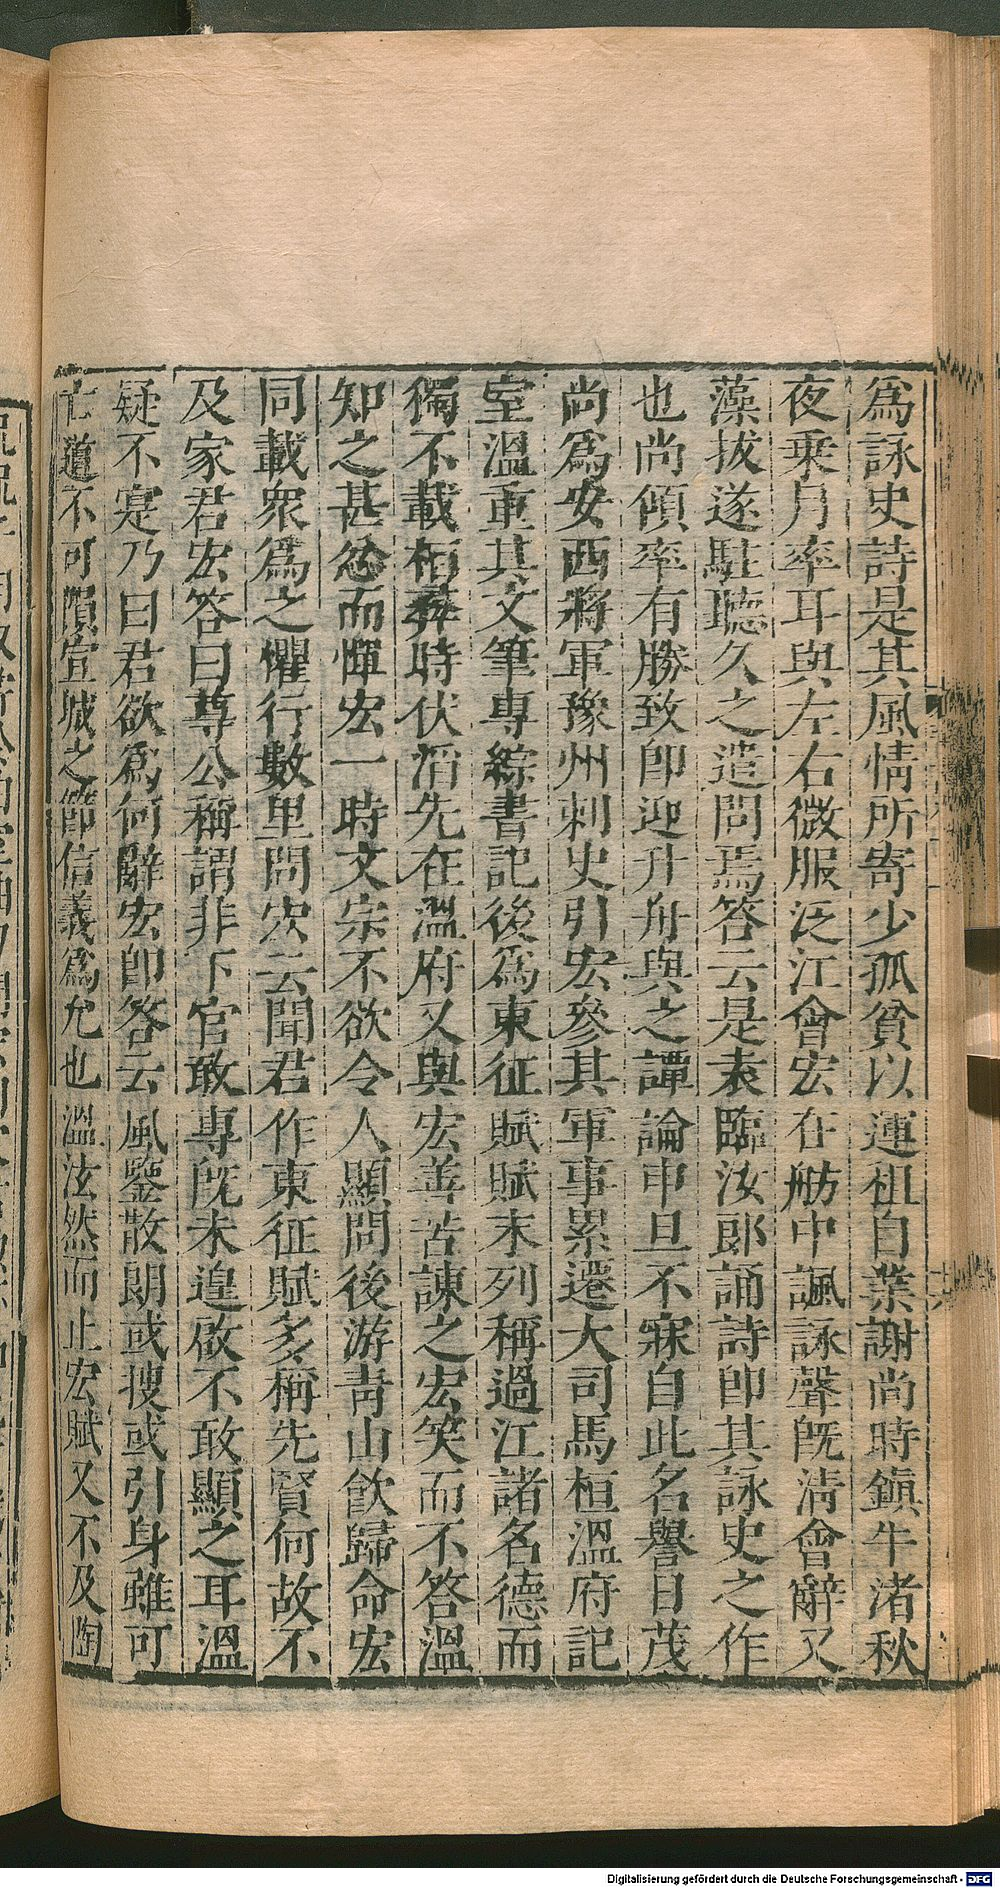 爲詠史詩是其風情所寄少孤貧以運租自業謝尚時鎮牛渚秋
夜乗月率耳與左右微服泛江會宏在舫中諷詠聲旣淸會辭又
藻拔遂駐聽久之遣問焉答云是袁臨汝郎誦詩卽其詠史之作
也尚傾率有勝致卽迎升舟與之譚論申旦不寐自此名譽日茂
尚爲安西將軍豫州刺史引宏參其軍事累遷大司馬桓溫府記
室溫重其文筆專綜書記後爲東征賦賦末列稱過江諸名德而
獨不載桓彝時伏滔先在溫府又與宏善苦諫之宏笑而不答溫
知之甚忿而憚宏一時文宗不欲令人顯問後游靑山飮歸命宏
同載衆爲之懼行數里問宏云聞君作東征賦多稱先賢何故不
及家君宏答曰尊公稱謂非下官敢專旣未遑啟不敢顯之耳溫
疑不寔乃曰君欲爲何辭宏卽答云風鑒散朗或搜或引身雖可
亡道不可隕宣城之節信義爲允也溫泫然而止宏賦又不及陶
Digitalisierung gefördert durch die Deutsche Forschungsgemeinschaft - DFG